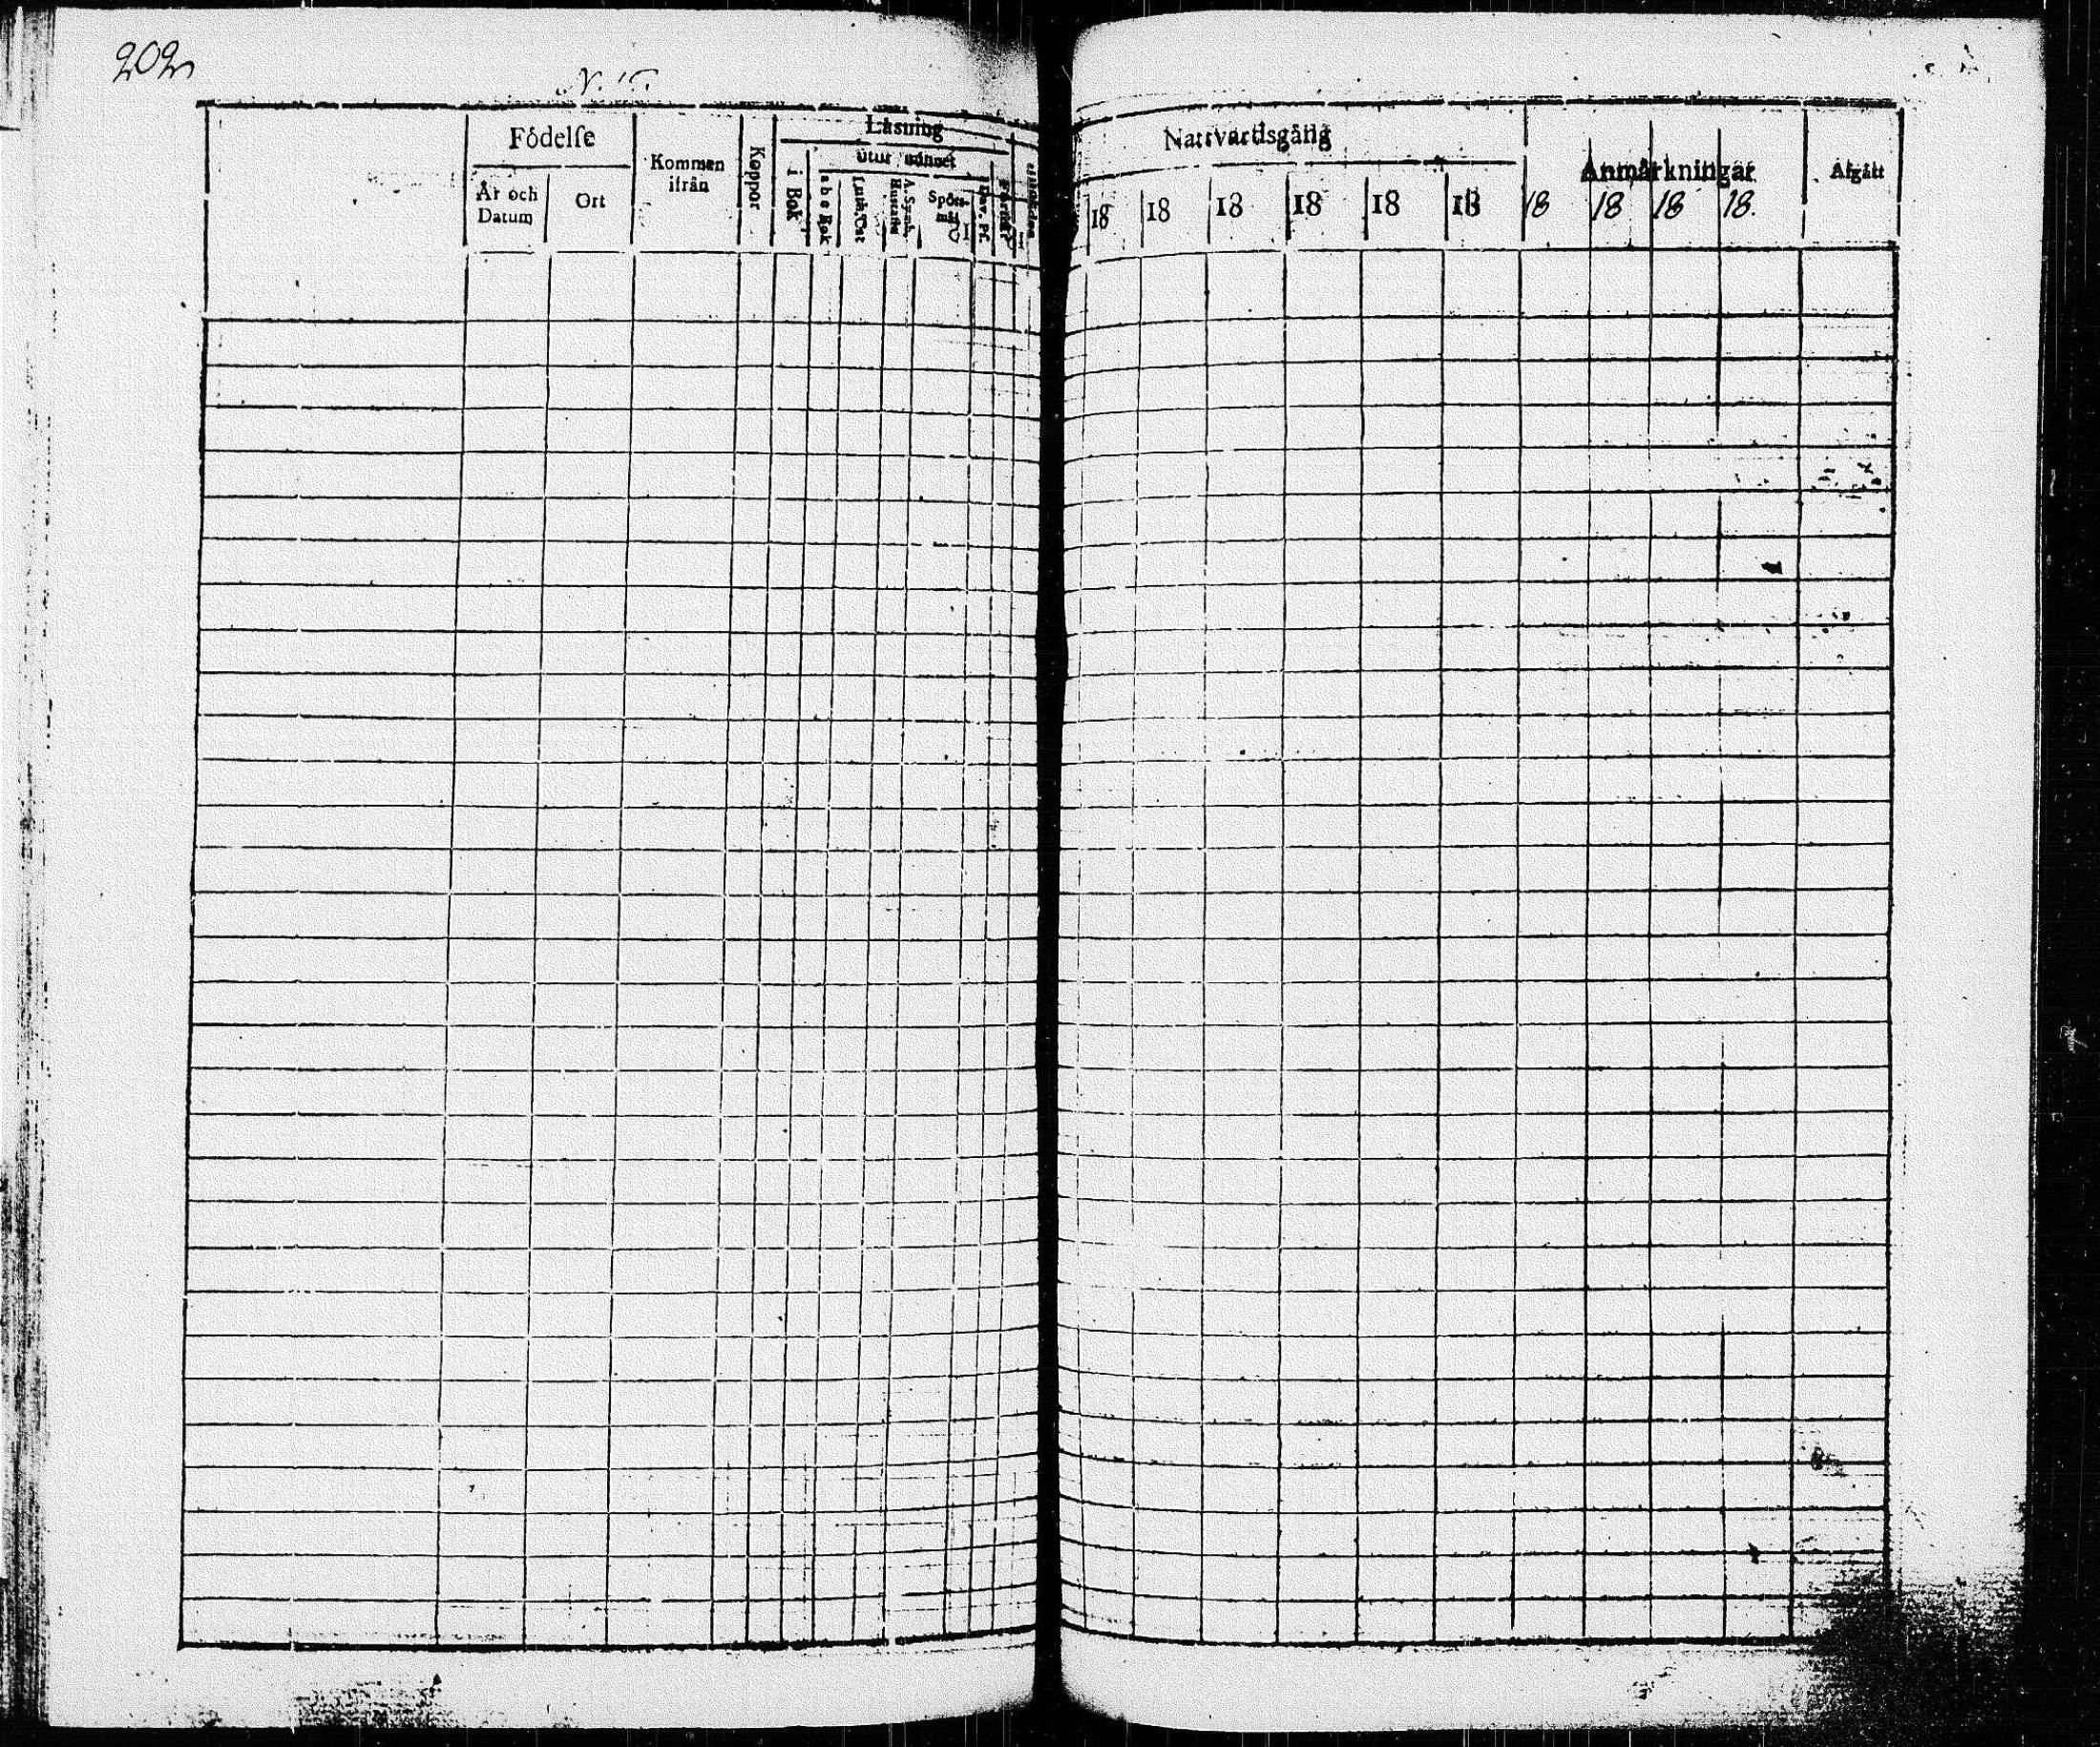 202
N. 15.
Födelse
År och Datum
Ort
Kommen ifrån
Koppor
Läsning
i Bok
utur minnet
a b c Bok
Luth. Cat
A. Symb.
Hustafla
Spörsmål
Dav. Ps.
Nattvardsgång
18 18 18 18 18 18 18 18 18 18.
Anmärkningar
Afgått